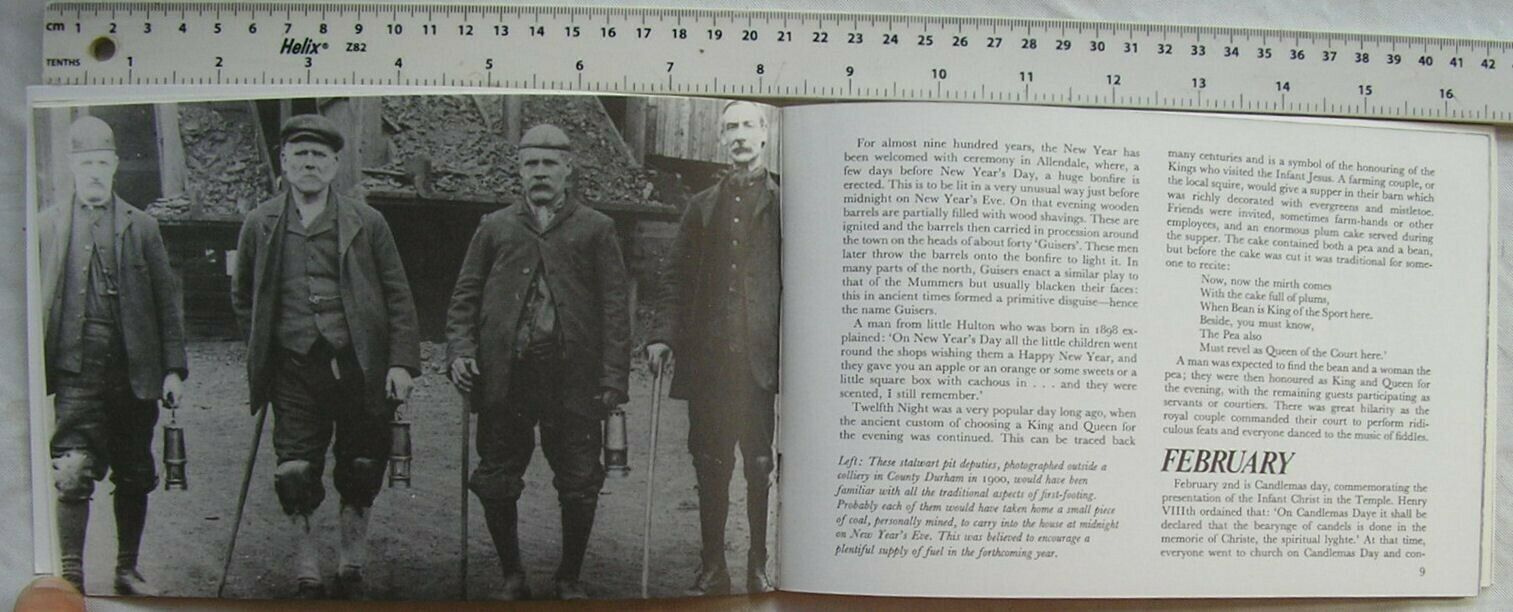 cm 1 2 3 4 5 6 7 8 9 10 11 12 13 14 15 16 17 18 19 20 21 22 23 24 25 26 27 28 29 30 31 32 33 34 35 36 37 38 39 40 41 42
Helix® Z82
TENTHS 1 2 3 4 5 6 7 8 9 10 11 12 13 14 15 16
For almost nine hundred years, the New Year has
been welcomed with ceremony in Allendale, where, a
few days before New Year's Day, a huge bonfire is
erected. This is to be lit in a very unusual way just before
midnight on New Year's Eve. On that evening wooden
barrels are partially filled with wood shavings. These are
ignited and the barrels then carried in procession around
the town on the heads of about forty 'Guisers'. These men
later throw the barrels onto the bonfire to light it. In
many parts of the north, Guisers enact a similar play to
that of the Mummers but usually blacken their faces:
this in ancient times formed a primitive disguise—hence
the name Guisers.
A man from little Hulton who was born in 1898 ex-
plained: 'On New Year's Day all the little children went
round the shops wishing them a Happy New Year, and
they gave you an apple or an orange or some sweets or a
little square box with cachous in . . . and they were
scented, I still remember.'
Twelfth Night was a very popular day long ago, when
the ancient custom of choosing a King and Queen for
the evening was continued. This can be traced back
Left: These stalwart pit deputies, photographed outside a
colliery in County Durham in 1900, would have been
familiar with all the traditional aspects of first-footing.
Probably each of them would have taken home a small piece
of coal, personally mined, to carry into the house at midnight
on New Year's Eve. This was believed to encourage a
plentiful supply of fuel in the forthcoming year.
many centuries and is a symbol of the honouring of the
Kings who visited the Infant Jesus. A farming couple, or
the local squire, would give a supper in their barn which
was richly decorated with evergreens and mistletoe.
Friends were invited, sometimes farm-hands or other
employees, and an enormous plum cake served during
the supper. The cake contained both a pea and a bean,
but before the cake was cut it was traditional for some-
one to recite:
Now, now the mirth comes
With the cake full of plums,
When Bean is King of the Sport here.
Beside, you must know,
The Pea also
Must revel as Queen of the Court here.'
A man was expected to find the bean and a woman the
pea; they were then honoured as King and Queen for
the evening, with the remaining guests participating as
servants or courtiers. There was great hilarity as the
royal couple commanded their court to perform ridi-
culous feats and everyone danced to the music of fiddles.
FEBRUARY
February 2nd is Candlemas day, commemorating the
presentation of the Infant Christ in the Temple. Henry
VIIIth ordained that: 'On Candlemas Daye it shall be
declared that the bearynge of candels is done in the
memorie of Christe, the spiritual lyghte.' At that time,
everyone went to church on Candlemas Day and con-
9